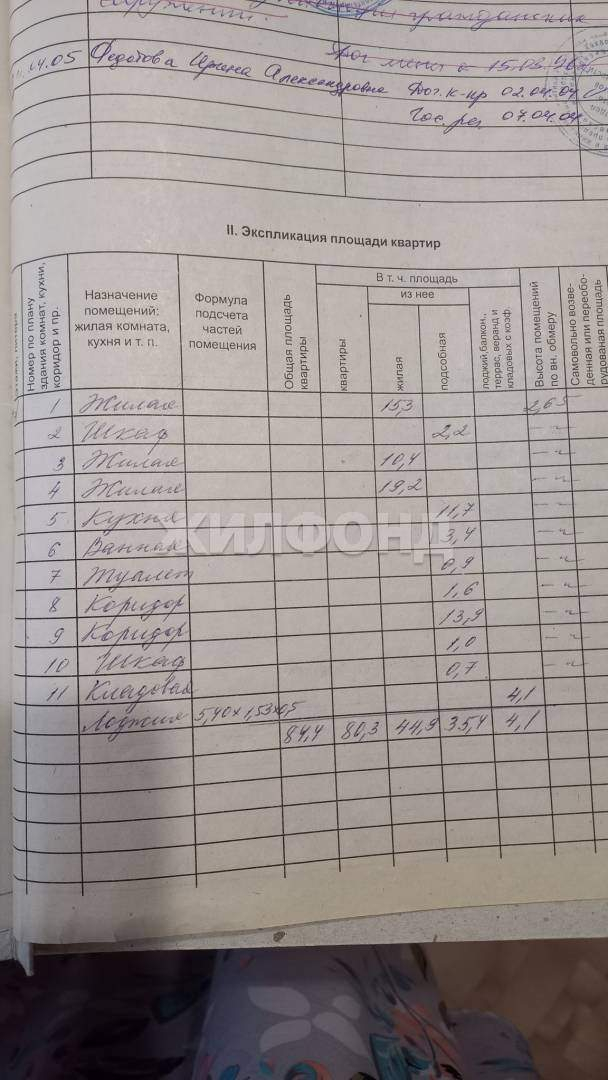 сооружений. гражданским
Дог мены с 15.03.96г
04.05 Федотова Ирина Александровна Дог. к-пр 02.04.04
Гос. рег 07.04.04
II. Экспликация площади квартир
Номер по плану здания комнат, кухни, коридор и пр.
Назначение помещений: жилая комната, кухня и т. п.
Формула подсчета частей помещения
Общая площадь квартиры
В т. ч. площадь
квартиры
из нее
жилая
подсобная
лоджий, балкон., террас, веранд и кладовых с коэф.
Высота помещений по вн. обмеру
Самовольно возве-
денная или переобо-
рудованая площадь
1 Жилая 15,3 2,65
2 Шкаф 2,2 –"–
3 Жилая 10,4 –"–
4 Жилая 19,2 –"–
5 Кухня 11,7 –"–
6 Ванная 3,4 –"–
7 Туалет 0,9 –"–
8 Коридор 1,6 –"–
9 Коридор 13,9 –"–
10 Шкаф 1,0 –"–
11 Кладовая 0,7
Лоджия 5,40×1,53×0,5 4,1
84,4 80,3 44,9 35,4 4,1
ЖИЛФОНД